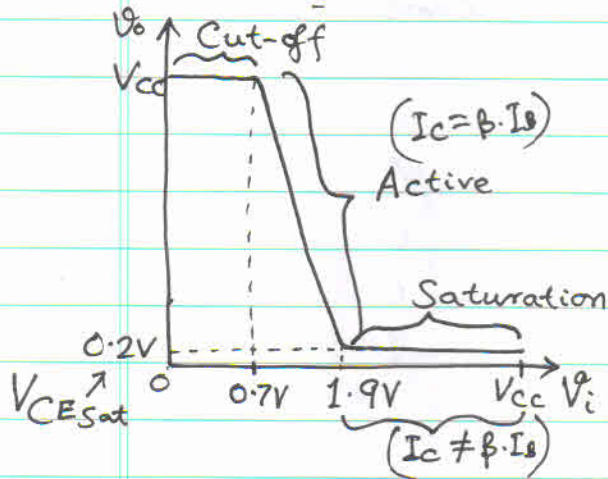 v₀
Cut-off
Vcc
(Ic = β·IB)
Active
Saturation
0.2V
VCESat
0
0.7V
1.9V
Vcc
Vi
(Ic ≠ β·IB)